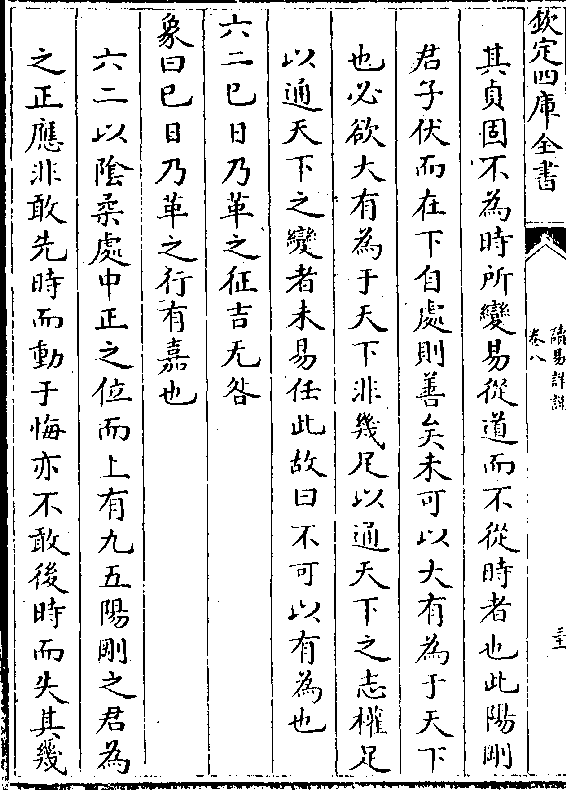 欽定四庫全書
讀易詳說
卷八
其貞固不為時所變易從道而不從時者也此陽剛
君子伏而在下自處則善矣未可以大有為于天下
也必欲大有為于天下非幾足以通天下之志權足
以通天下之變者未易任此故曰不可以有為也
六二巳日乃革之征吉无咎
象曰巳日乃革之行有嘉也
六二以陰柔處中正之位而上有九五陽剛之君為
之正應非敢先時而動于悔亦不敢後時而失其幾